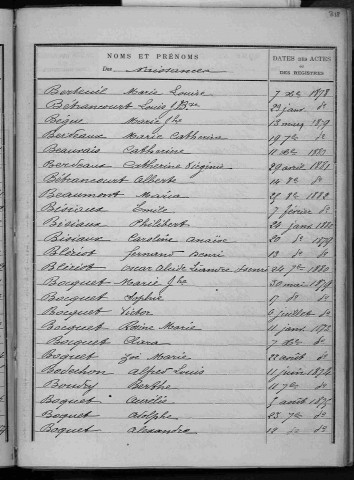 NOMS ET PRÉNOMS
Des Naissances
DATES DES ACTES
OU
DES REGISTRES
Berteuil Marie Louise 7 Xbre 1878
Bétrancourt Louis J. Bte 23 janv. do
Bègue Marie Jhe 12 mars 1879
Berteaux Marie Catherine 19 7bre do
Beauvais Catherine 11 Xbre 1880
Bordeaux Catherine Virginie 29 avril 1881
Bétrancourt Alberte 14 8bre do
Beaumont Maria 25 8bre 1882
Bésiaux Emile 7 février do
Bésiaux Philibert 24 janv. 1880
Bisiaux Caroline Anaïse 20 do 1879
Blériot Fernand Henri 13 do do
Blériot Oscar Alcide Léandre Henri 24 7bre 1880
Bocquet Marie Jhe 30 mai 1874
Bocquet Sophie 17 do do
Bocquet Victor 6 juillet do
Bocquet Reine Marie 11 janv. 1872
Bocquet Clara 7 Xbre do
Boquet Zoé Marie 22 août do
Bodechon Alfred Louis 11 juin 1874
Boudry Berthe 11 7bre do
Boquet Aurélie 5 août 1875
Boquet Adolphe 23 7bre do
Boquet Alexandre 12 do do